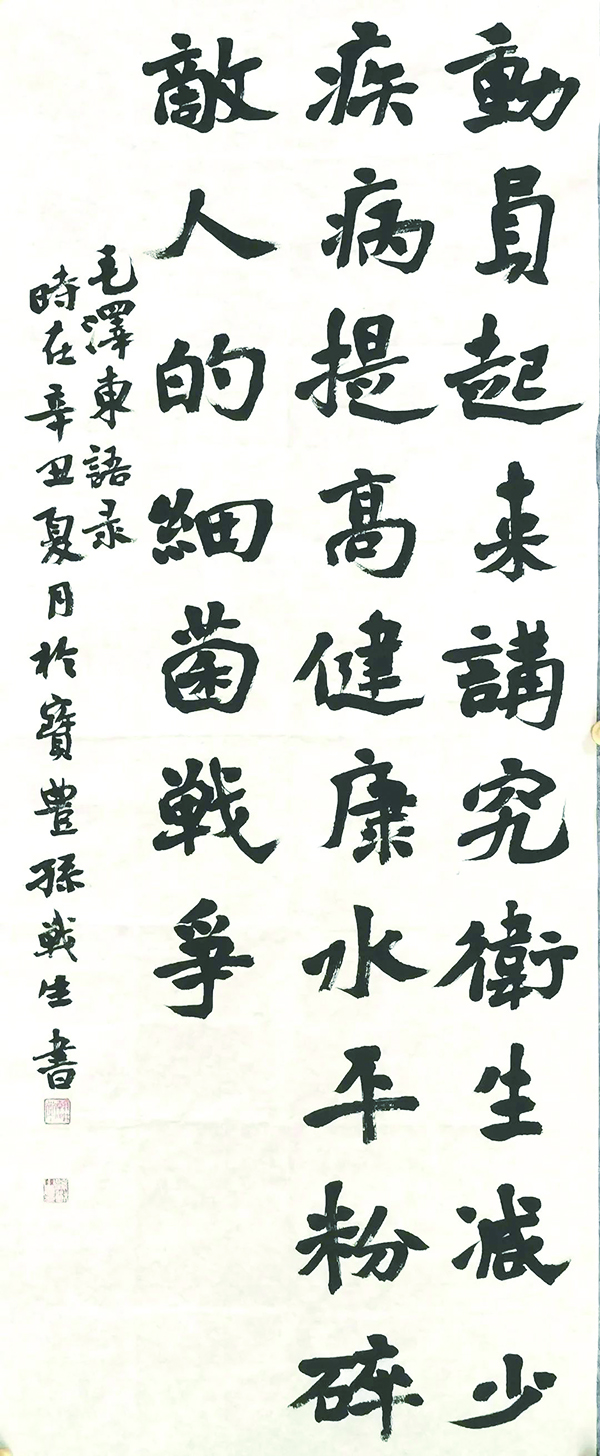 動員起来講究衛生減少
疾病提高健康水平粉碎
敵人的細菌戦爭
毛澤東語录
時在辛丑夏月於寳豊孫戦生書